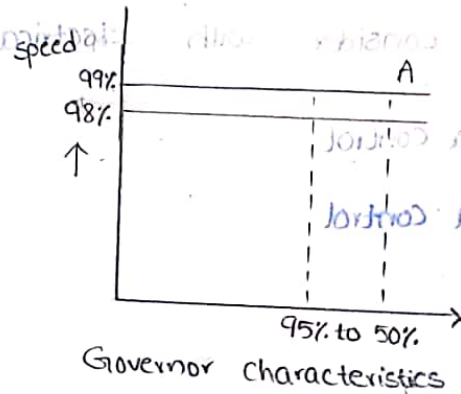 speed
99%
A
98%
↑
95% to 50%
Governor characteristics